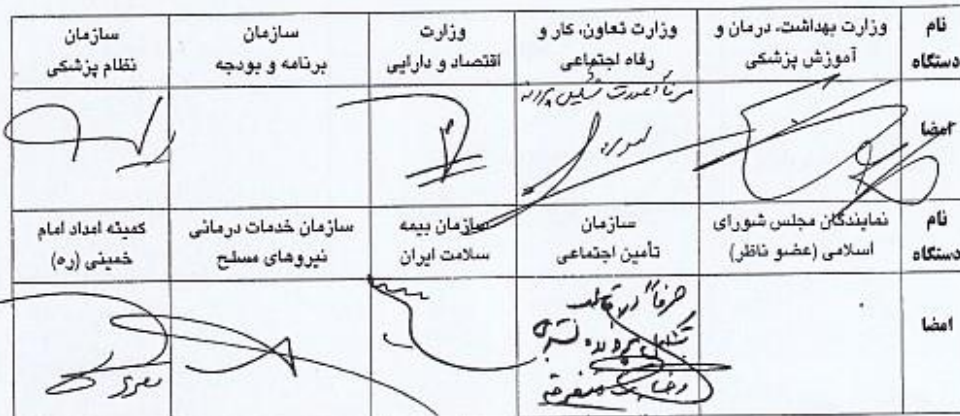 نام دستگاه
وزارت بهداشت، درمان و آموزش پزشکی
وزارت تعاون، کار و رفاه اجتماعی
وزارت اقتصاد و دارایی
سازمان برنامه و بودجه
سازمان نظام پزشکی
امضا
نام دستگاه
نمایندگان مجلس شورای اسلامی (عضو ناظر)
سازمان تأمین اجتماعی
سازمان بیمه سلامت ایران
سازمان خدمات درمانی نیروهای مسلح
کمیته امداد امام خمینی (ره)
امضا